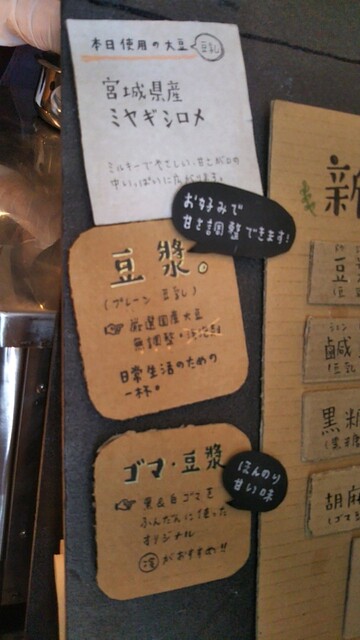 本日使用の大豆 豆乳
宮城県産
ミヤギシロメ
ミルキーでやさしい甘さが口の
中いっぱいに広がります。
お好みで
甘さ調整できます!
豆漿。
(プレーン豆乳)
厳選国産大豆
無調整・
日常生活のための
一杯。
ゴマ・豆漿
ほんのり
甘い味
黒&白ゴマを
ふんだんに使った
オリジナル
がおすすめ!!
新
豆
鹹
(豆乳
黒糖
胡麻
(ゴマ